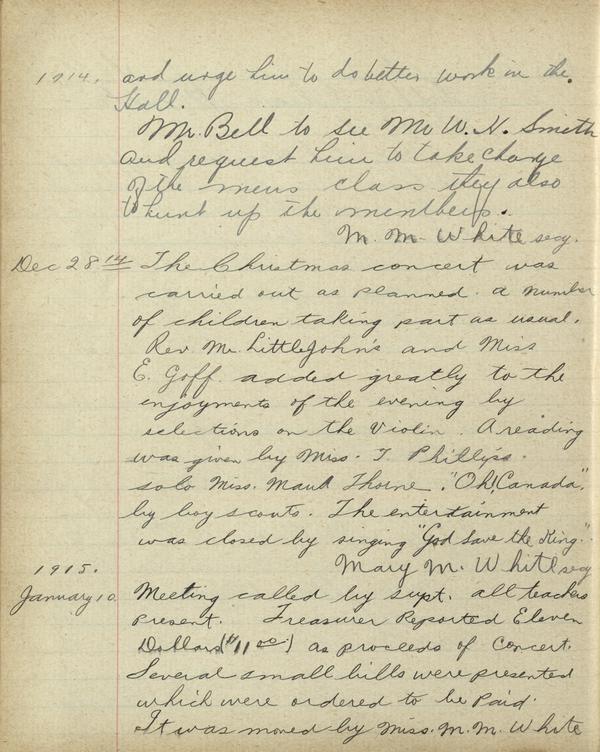 1914. and urge him to do better work in the.
Hall.
Mr. Bell to see Mr W. H. Smith
and request him to take charge
of the mens class they also
to hunt up the members.
M. M. White secy.
Dec 28 14 The Christmas concert was
carried out as planned. a number
of children taking part as usual.
Rev. Mr. LittleJohn's and Miss
E. Goff. added greatly to the
enjoyments of the evening by
selections on the Violin. A reading
was given by Miss. T. Phillips.
solo Miss. Maud Thorne. "Oh! Canada".
by boy scouts. The entertainment
was closed by singing "God Save the King."
Mary M. White secy
1915.
January 10. Meeting called by supt. all teachers
present. Treasurer Reported Eleven
Dollars ($11 00) as proceeds of Concert.
Several small bills were presented
which were ordered to be paid.
It was moved by Miss. M. M. White